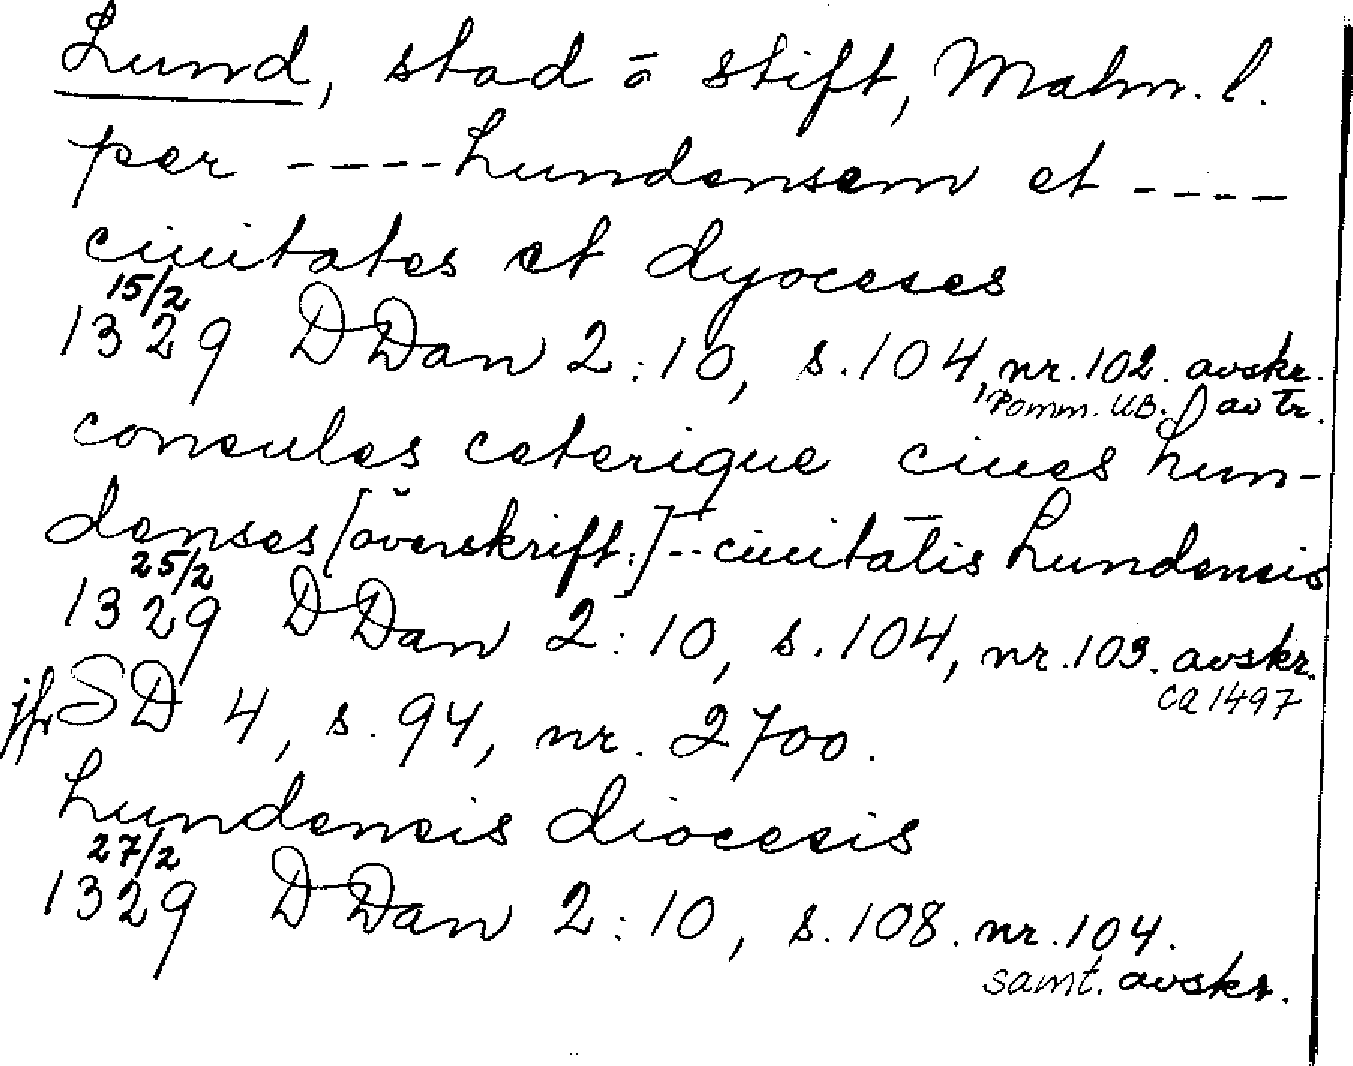 Lund, stad o stift, Malm. l.
per ---- Lundensem et ----
ciuitates et dyoceses
15/2
1329 DDan 2:10, s. 104, nr. 102. avskr.
Pomm. UB. av tr.
consules ceterique ciues Lun-
denses [överskrift:] -- ciuitatis Lundensis
25/2
1329 DDan 2:10, s. 104, nr. 103. avskr.
ca 1497
jfr SD 4, s. 94, nr. 2700.
Lundensis diocesis
27/2
1329 DDan 2:10, s. 108. nr. 104.
samt. avskr.